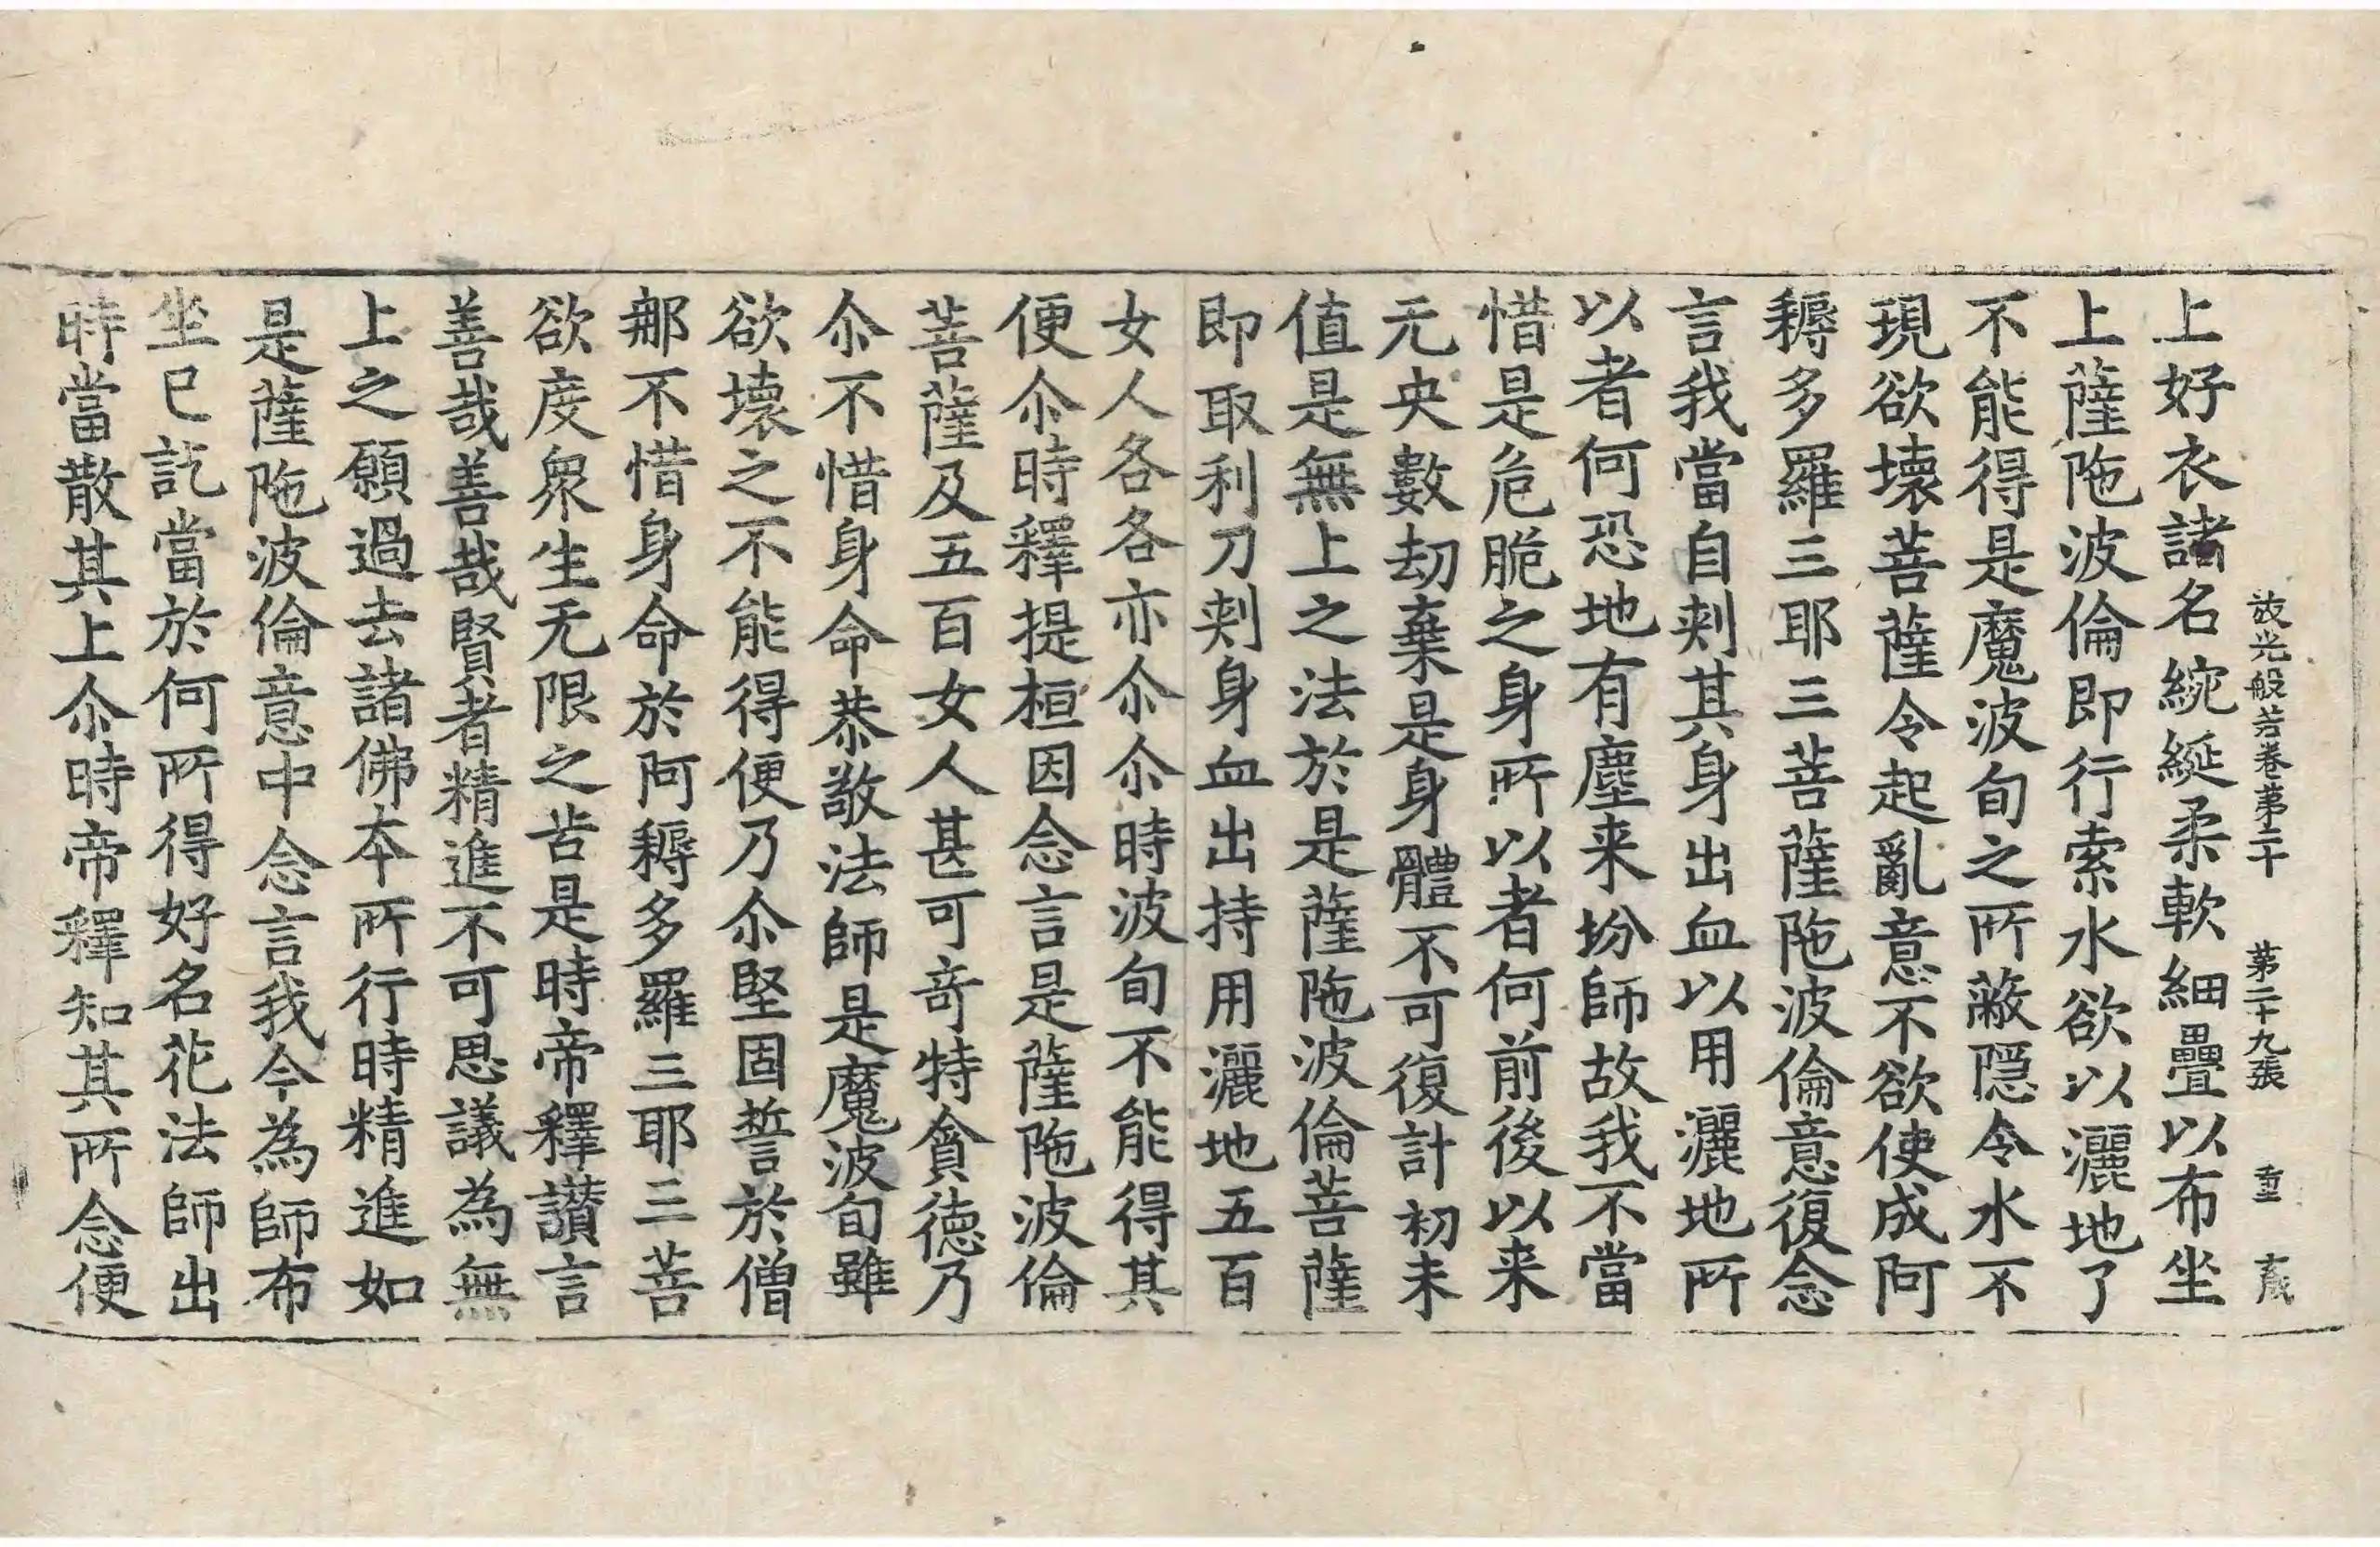 放光般若卷第二十　第二十九張　重
上好衣諸名綩綖柔軟細疊以布坐
上薩陁波倫即行索水欲以灑地了
不能得是魔波旬之所蔽隱令水不
現欲壞菩薩令起亂意不欲使成阿
耨多羅三耶三菩薩陁波倫意復念
言我當自刾其身出血以用灑地所
以者何恐地有塵来坋師故我不當
惜是危脆之身所以者何前後以来
无央數劫棄是身體不可復計初未
值是無上之法於是薩陁波倫菩薩
即取利刀刾身血出持用灑地五百
女人各各亦尒尒時波旬不能得其
便尒時釋提桓因念言是薩陁波倫
菩薩及五百女人甚可奇特貪德乃
尒不惜身命恭敬法師是魔波旬雖
欲壞之不能得便乃尒堅固誓於僧
那不惜身命於阿耨多羅三耶三菩
欲度衆生无限之苦是時帝釋讃言
善哉善哉賢者精進不可思議為無
上之願過去諸佛本所行時精進如
是薩陁波倫意中念言我今為師布
坐已訖當於何所得好名花法師出
時當散其上尒時帝釋知其所念便